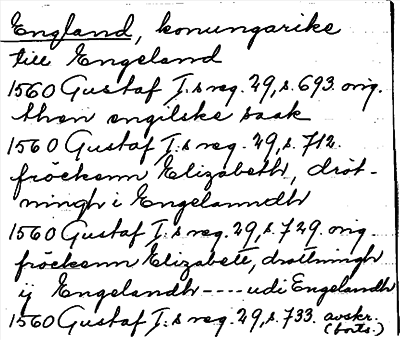 England, konungarike
till Engeland
1560 Gustaf I:s reg. 29, s. 693. orig.
then engilske saak
1560 Gustaf I:s reg. 29, s. 712.
fröckenn Elizabeth, drót-
ningh i Engelanndh
1560 Gustaf I:s reg. 29, s. 729. orig.
fröckenn Elizabett, drottningh
ij Engelandh ---- udi Engelandh
1560 Gustaf I:s reg. 29, s. 733. avskr.
(forts.)